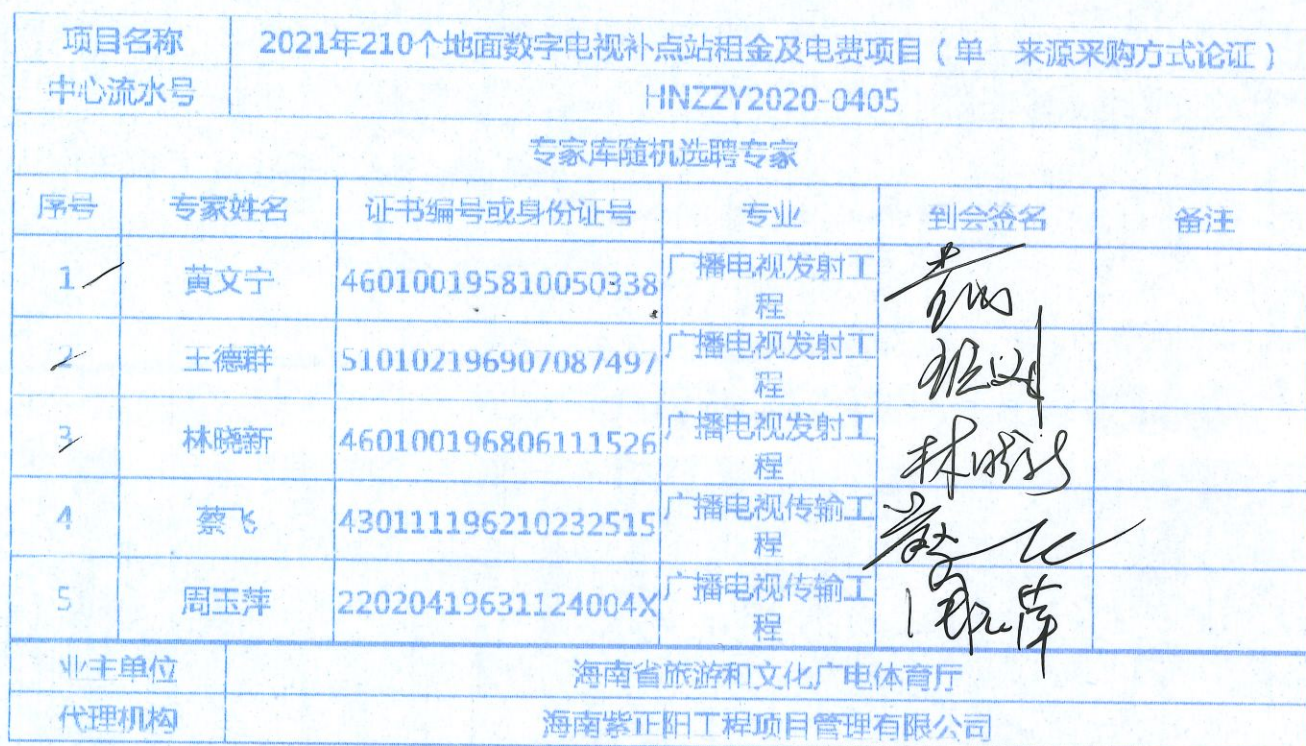 项目名称 2021年210个地面数字电视补点站租金及电费项目（单一来源采购方式论证）
中心流水号 HNZZY2020-0405
专家库随机选聘专家
序号 专家姓名 证书编号或身份证号 专业 到会签名 备注
1 黄文宁 460100195810050338 广播电视发射工
程
2 王德群 510102196907087497 广播电视发射工
程
3 林晓新 460100196806111526 广播电视发射工
程 林晓新
4 蔡飞 430111196210232515 广播电视传输工
程 蔡飞
5 周玉萍 22020419631124004X 广播电视传输工
程 周玉萍
业主单位 海南省旅游和文化广电体育厅
代理机构 海南紫正阳工程项目管理有限公司